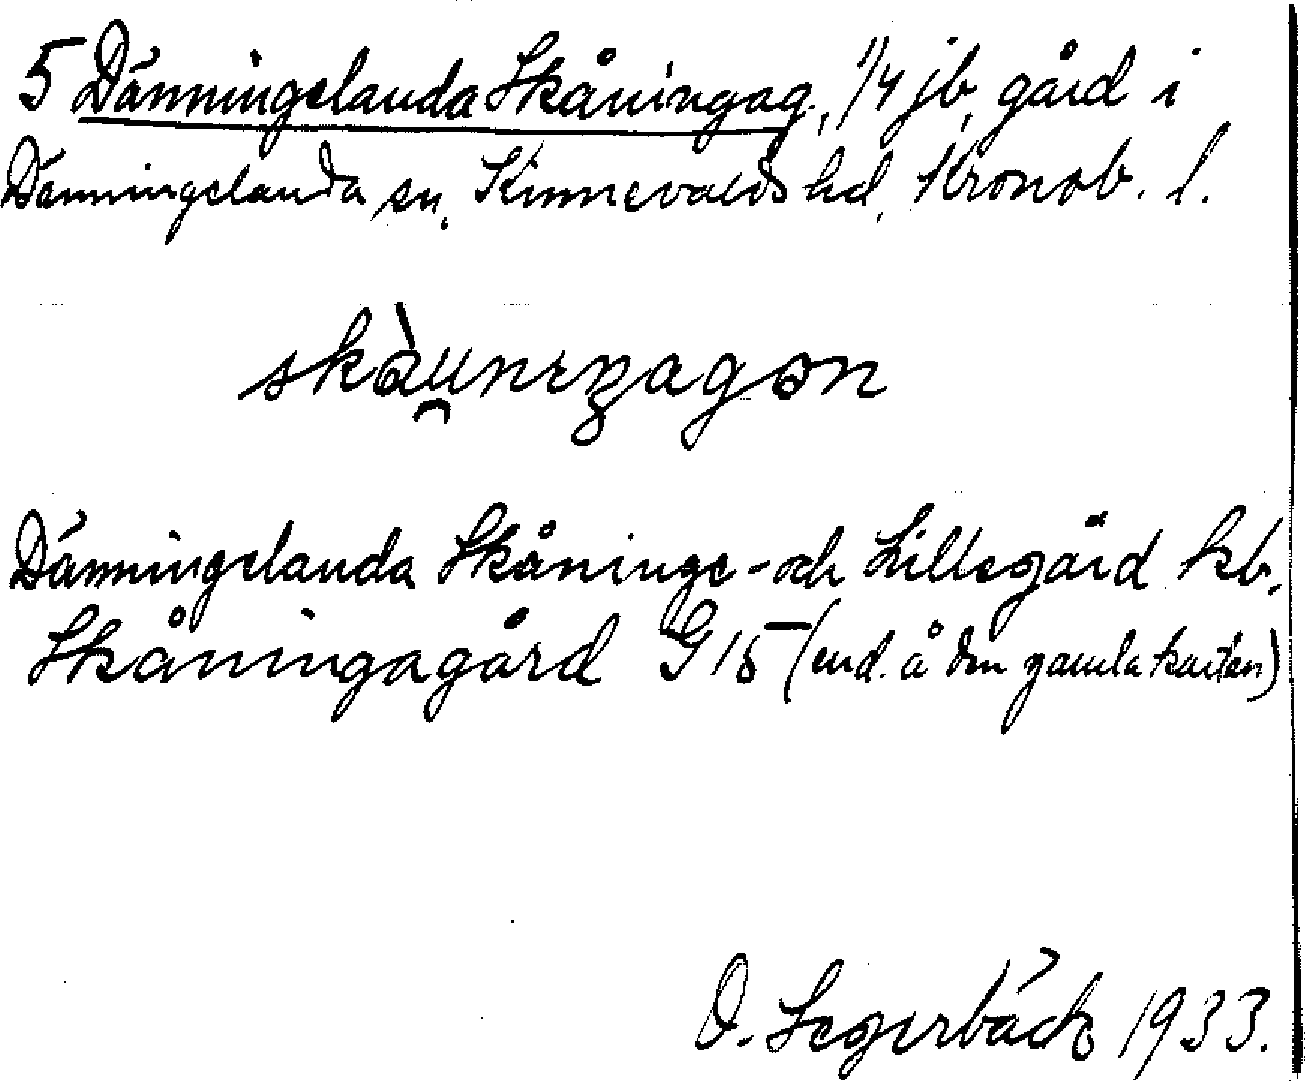 5 Dänningelanda Skåningag., 1/4 jb. gård i
Dänningelanda sn, Kinnevalds hd, Kronob. l.
skàu̯neŋagən
Dänningelanda Skåninge- och Lillegård kb,
Skåningagård G 15 (end. å den gamla kartan)
O. Segerbäck 1933.